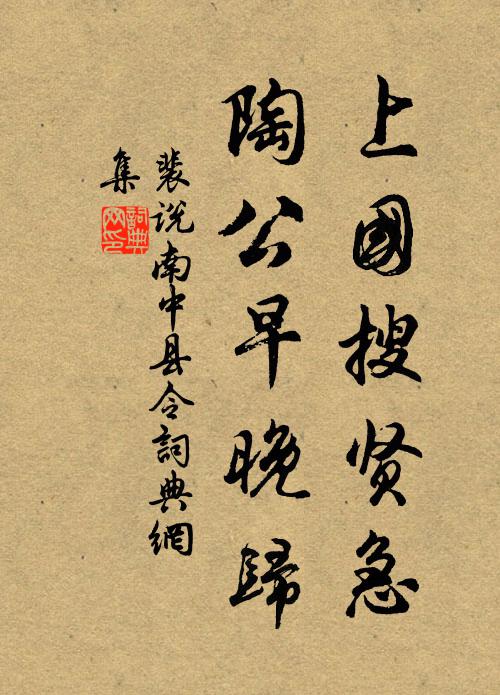 上國搜贤急
陶公早晚歸
裴说南中县令詞典網
集
詞典
网印